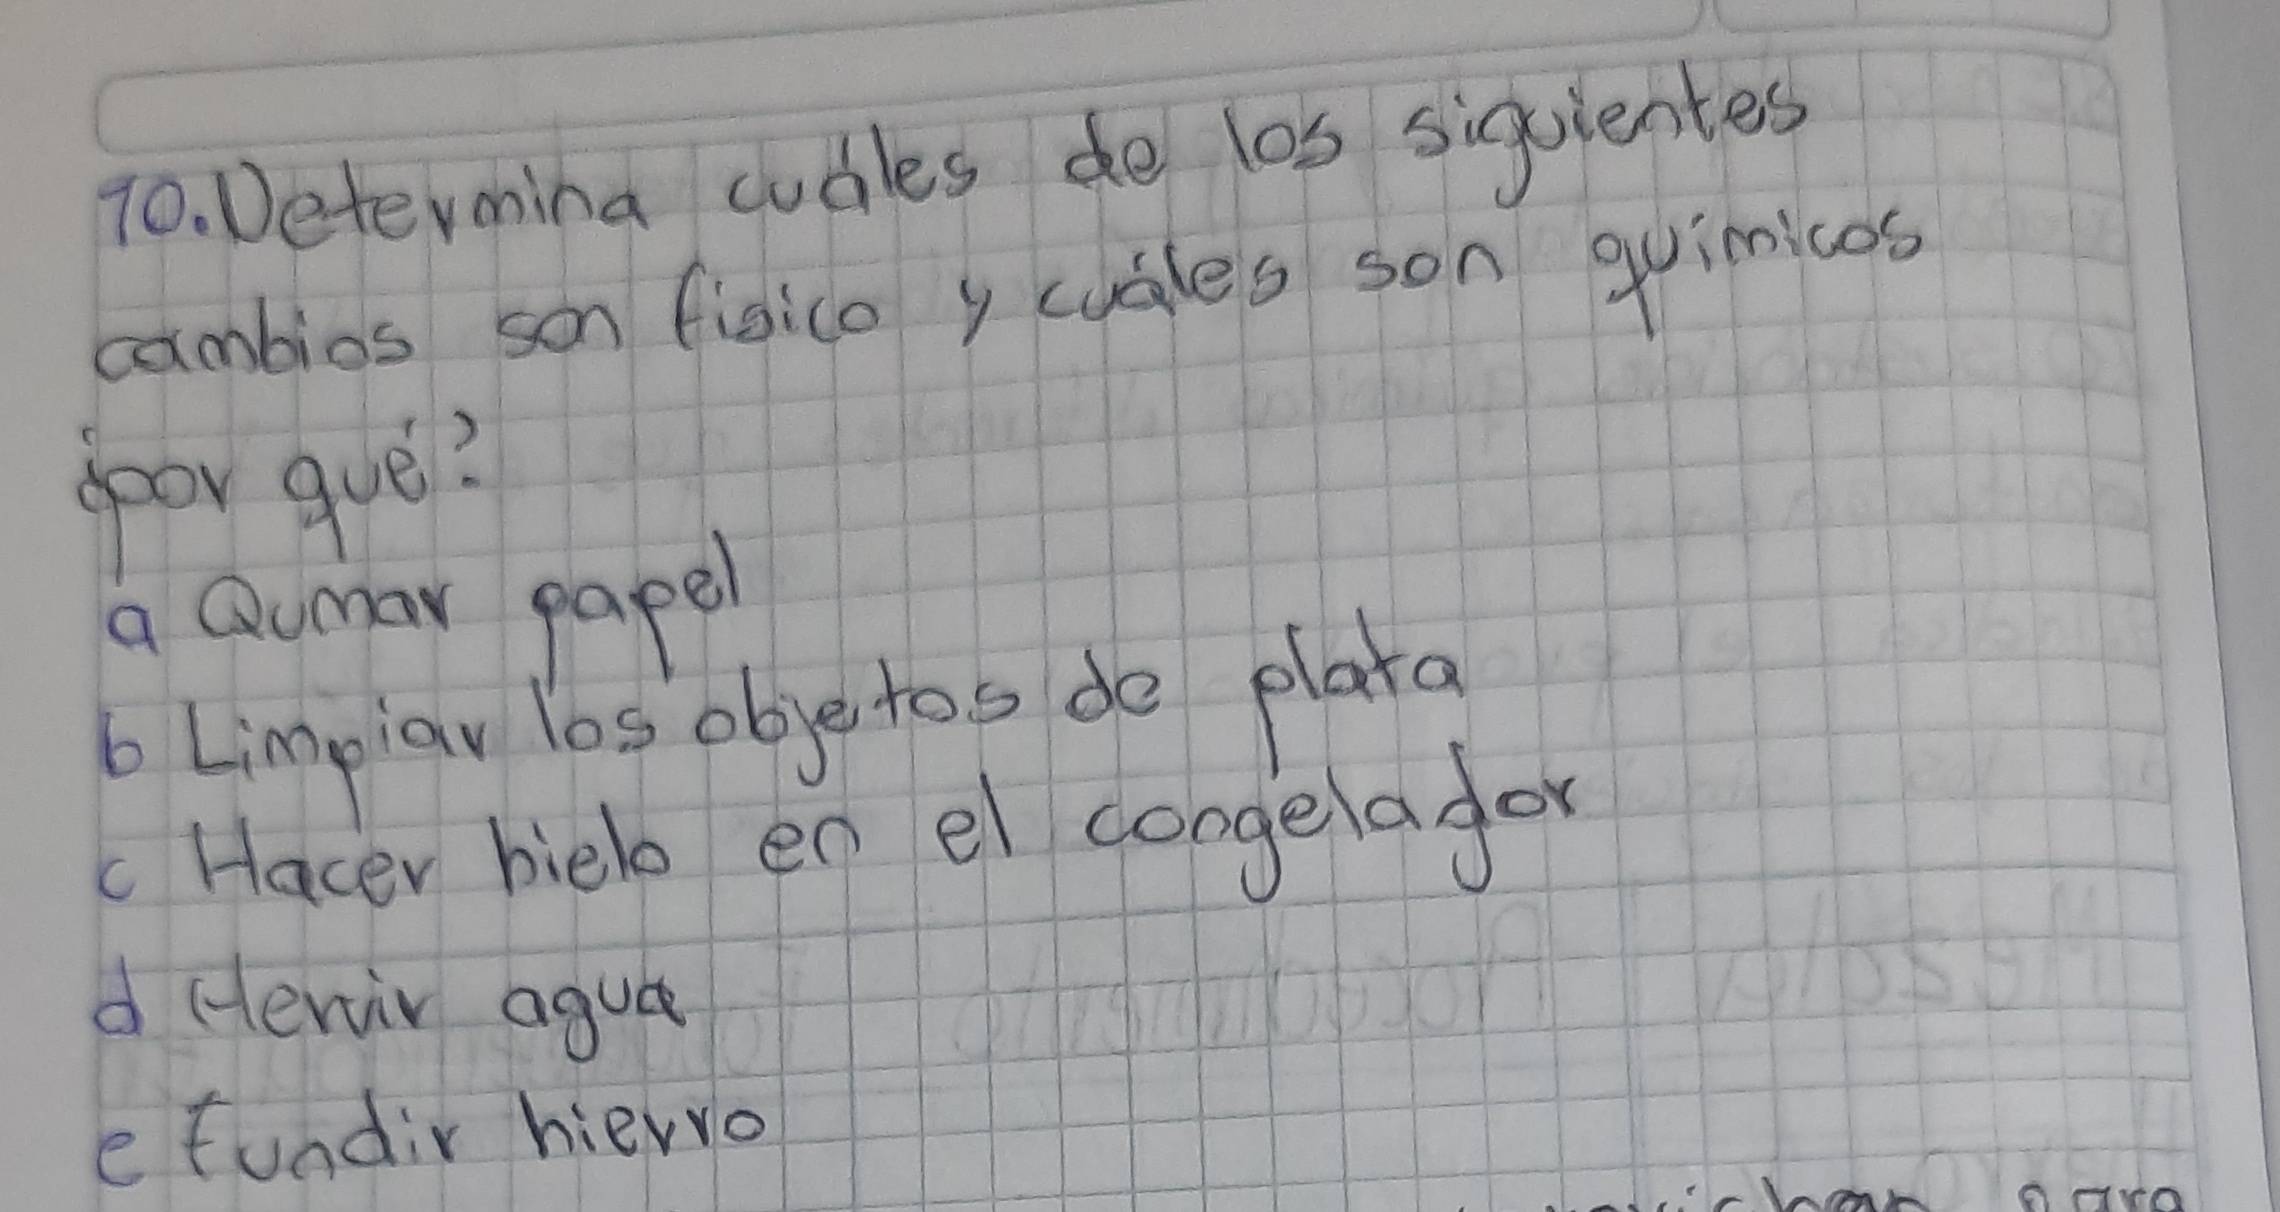 10. Determina cuáles de los siguientes
cambios son fisico y cuáles son químicos
¿por qué?
a Qumar papel
b Limpiar los objetos de plata
c Hacer hielo en el congelador
d Hervir agua
e fundir hierro
para